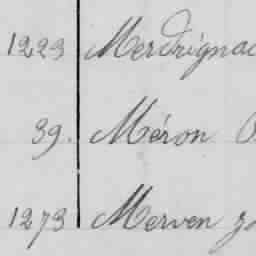 1223 Merdrignac
39. Méron
1273 Merven